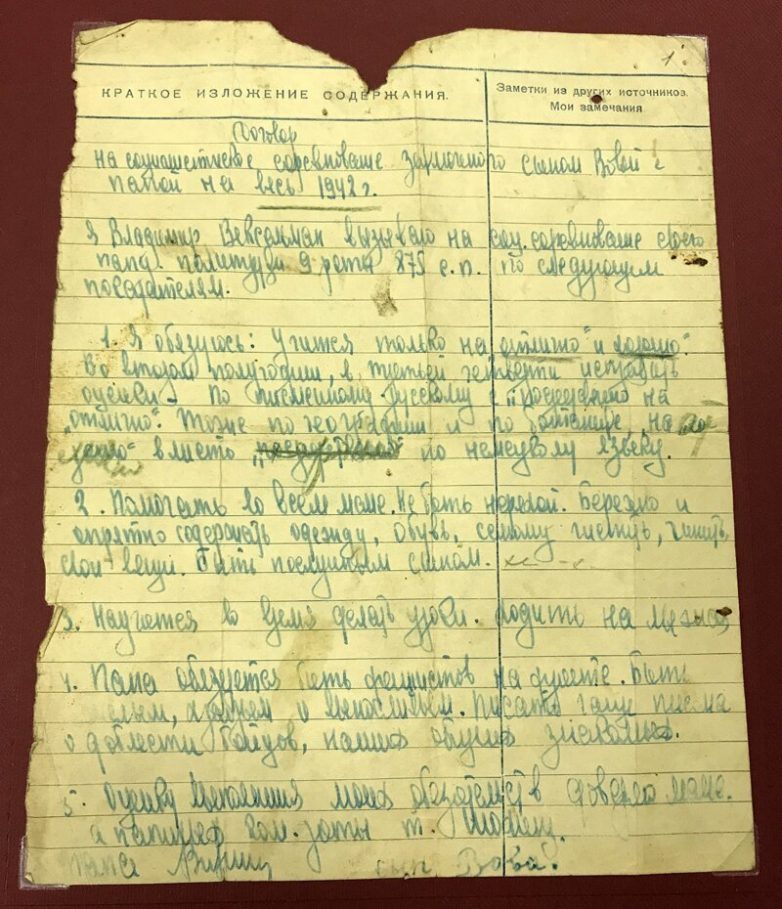 1.
КРАТКОЕ ИЗЛОЖЕНИЕ СОДЕРЖАНИЯ.
Заметки из других источников.
Мои замечания
Договор
на социалистическое соревнование заключенного сыном Вовой с
папой на весь 1942 г.
Я Владимир Вексельман вызываю на соц. соревнование своего
папу политрука 9 роты 875 с.п. по следующим
показателям.
1. Я обязуюсь: Учится только на „отлично" и „хорошо".
Во втором полугодии, в третьей четверти исправить
оценки - По письменному русскому с „посредствено" на
„отлично". Тоже по географии и по ботанике, на
вместо по немецкому языку.
2. Помогать во всем маме. Не быть неряхой. Бережно и
опрятно содержать одежду, обувь, самому чистить, чинить
свои вещи. Быть послушным сыном.
3. Научится во время делать уроки. Ходить на
4. Папа обязуется бить фашистов на фронте. Быть
и выносливым. Писать чаще письма
о доблести бойцов, наших общих знакомых.
5. Оценку выполнения моих обязательств доверяю маме.
а папиных ком. роты т.
папа сын Вова.